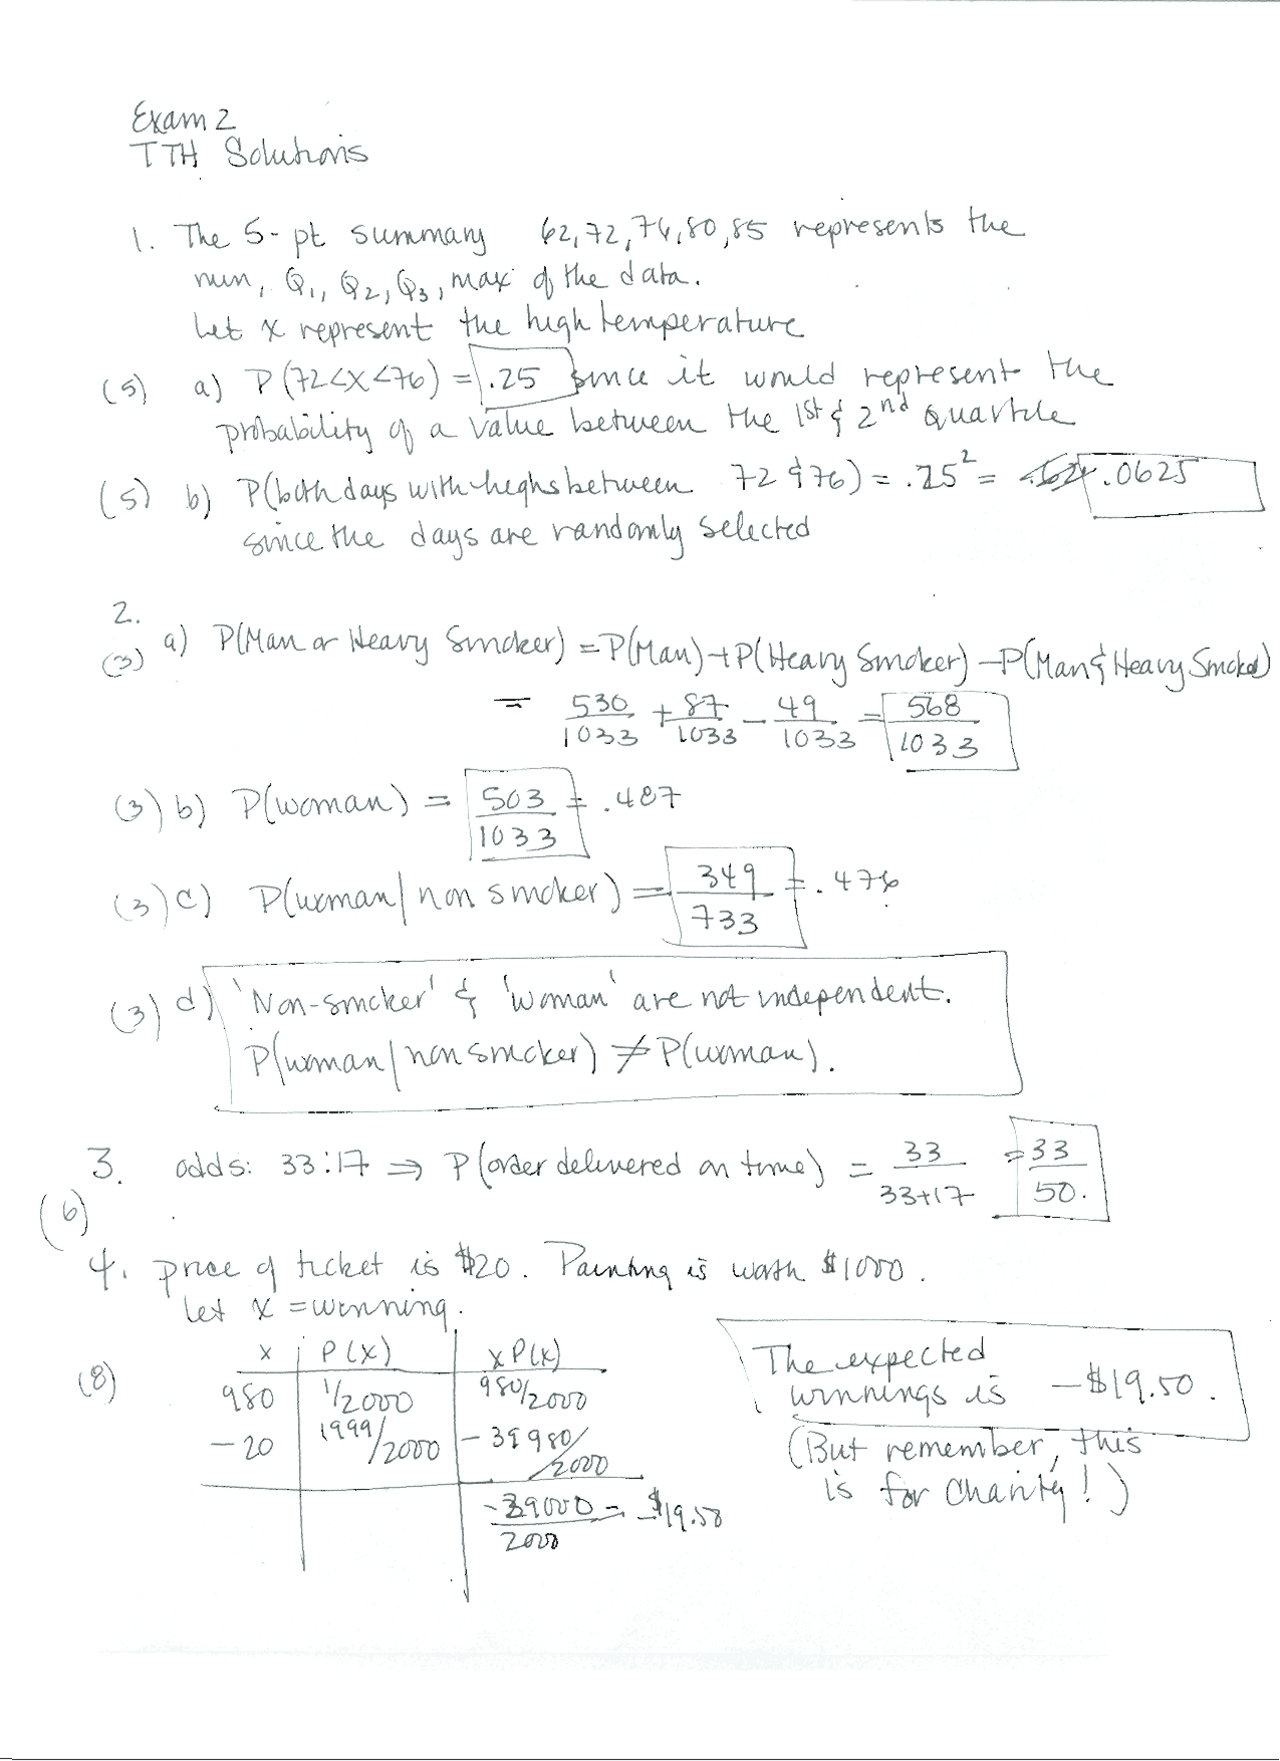 Exam 2
TTH Solutions
1. The 5-pt summary 62,72,76,80,85 represents the
min, Q1, Q2, Q3, max of the data.
Let x represent the high temperature
(5) a) P(72<X<76) = .25 since it would represent the
probability of a value between the 1st & 2nd quartile
(5) b) P(both days with highs between 72 & 76) = .25² = .0625
since the days are randomly selected
2.
(3) a) P(Man or Heavy Smoker) = P(Man) + P(Heavy Smoker) - P(Man & Heavy Smoker)
= 530/1033 + 87/1033 - 49/1033 = 568/1033
(3) b) P(woman) = 503/1033 = .487
(3) c) P(woman | non smoker) = 349/733 = .476
(3) d) 'Non-smoker' & 'woman' are not independent.
P(woman | non smoker) ≠ P(woman).
3. odds: 33:17 ⇒ P(order delivered on time) = 33/33+17 = 33/50.
(6)
4. price of ticket is $20. Painting is worth $1000.
Let x = winning.
(8) x P(x) x P(x)
980 1/2000 980/2000
-20 1999/2000 -39980/2000
-39000/2000 = -$19.50
The expected
winnings is -$19.50.
(But remember, this
is for charity!)